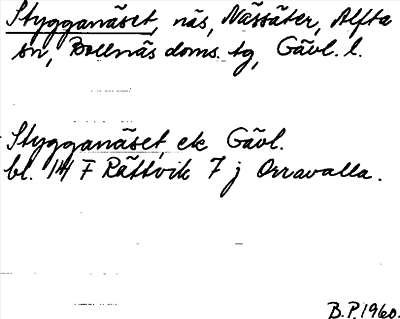 Stygganäset, näs, Nässäter, Alfta
sn, Bollnäs doms. tg, Gävl. l.
Stygganäset, ek Gävl.
bl. 14 F Rättvik 7 j Orravalla.
B.P. 1960.